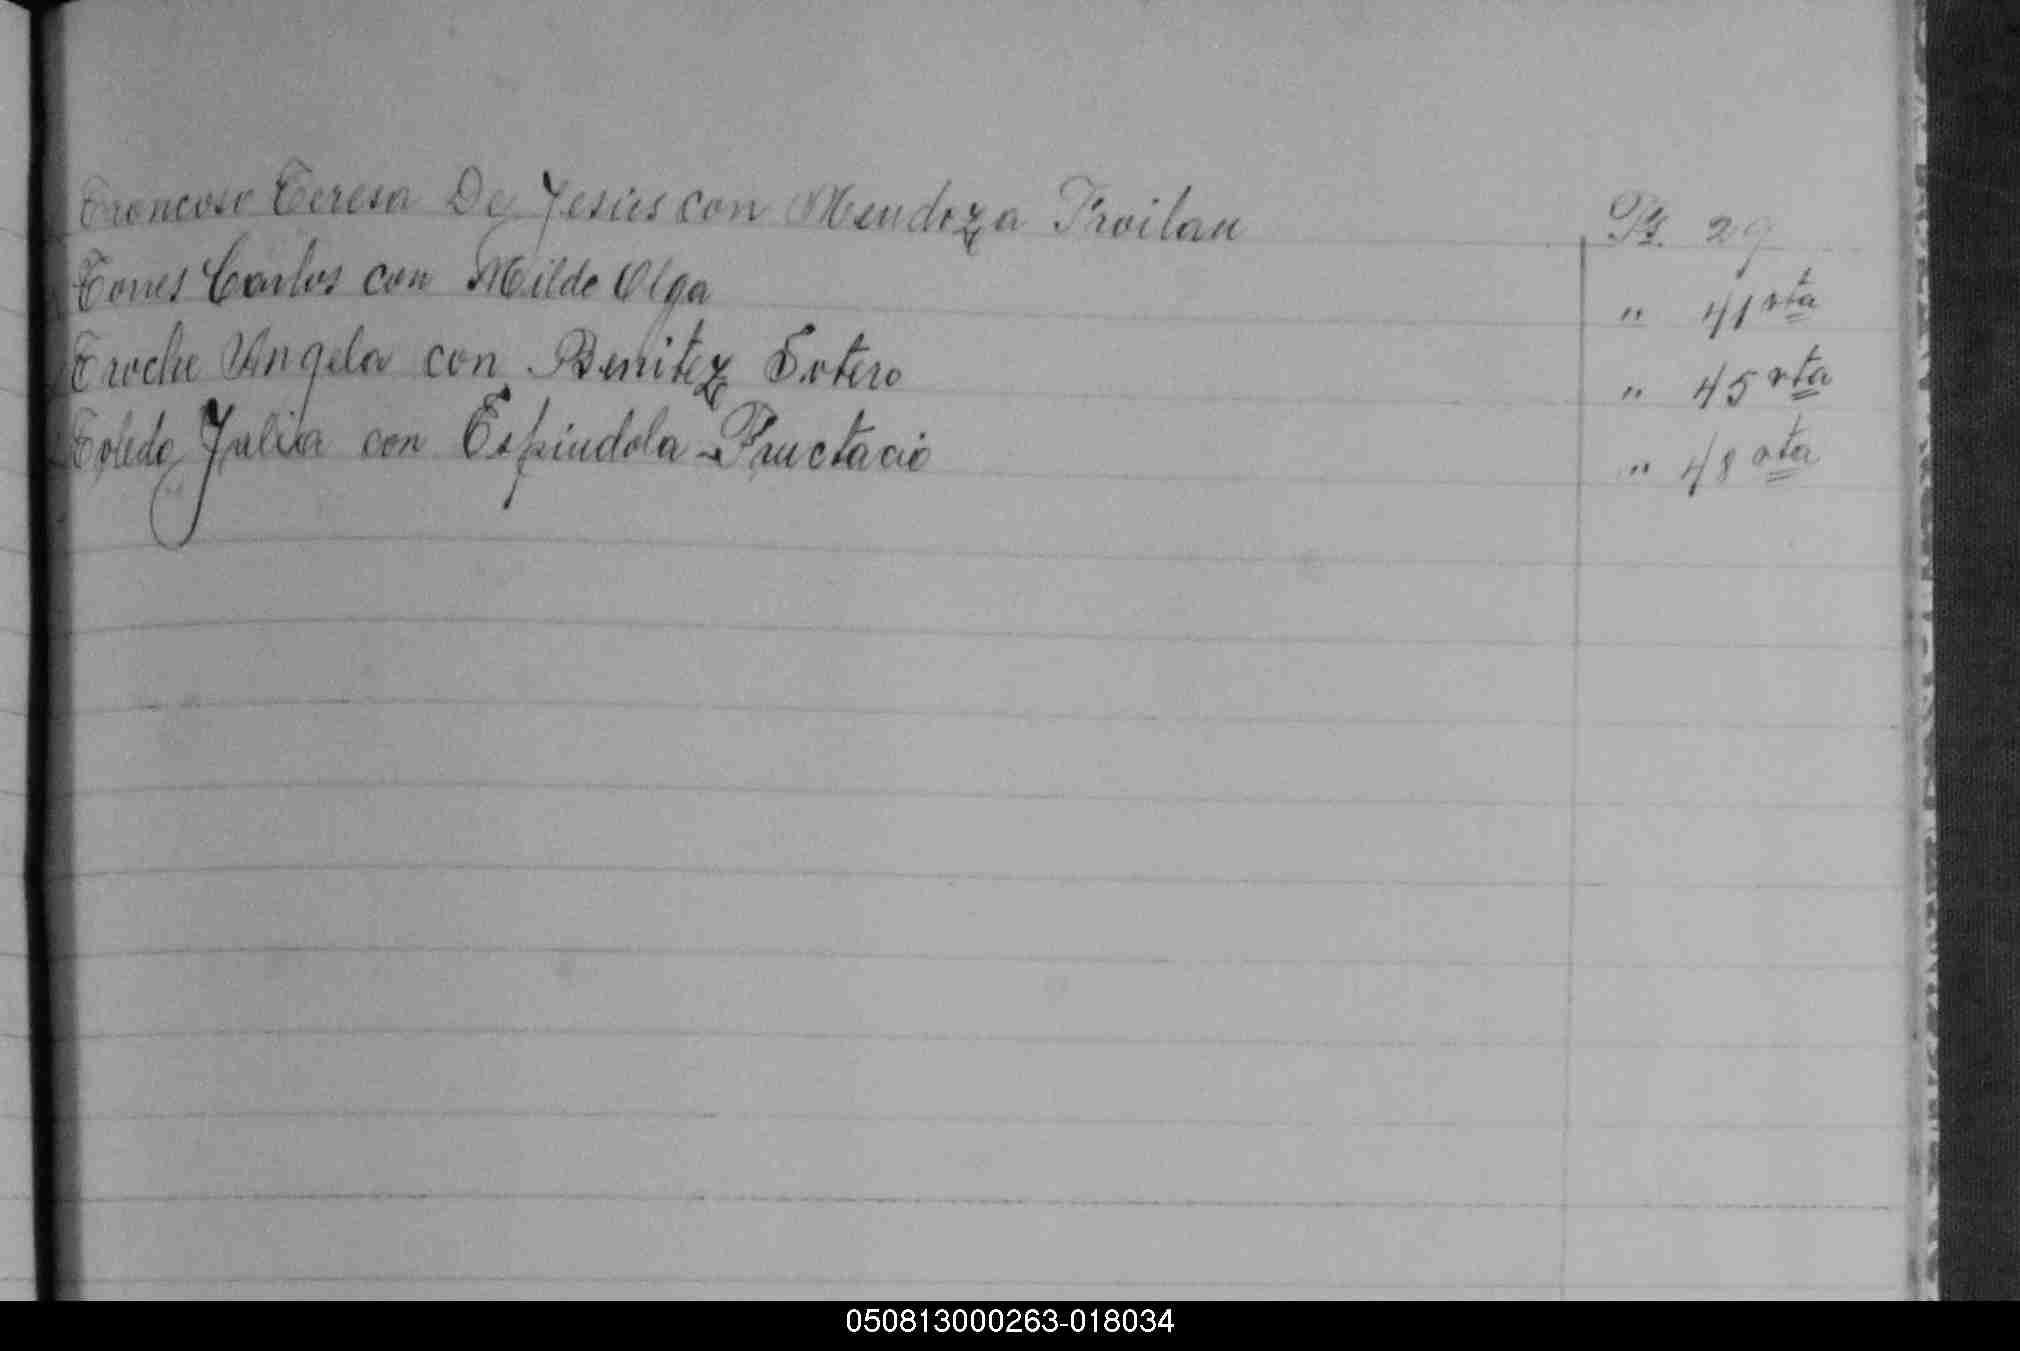 Troncoso Teresa De Jesús con Mendoza Froilan Pg. 29
Torres Carlos con Milde Olga " 41 vta
Troche Angela con Benitez Sotero " 45 vta
Toledo Julia con Espindola Fructacio " 48 vta
050813000263-018034